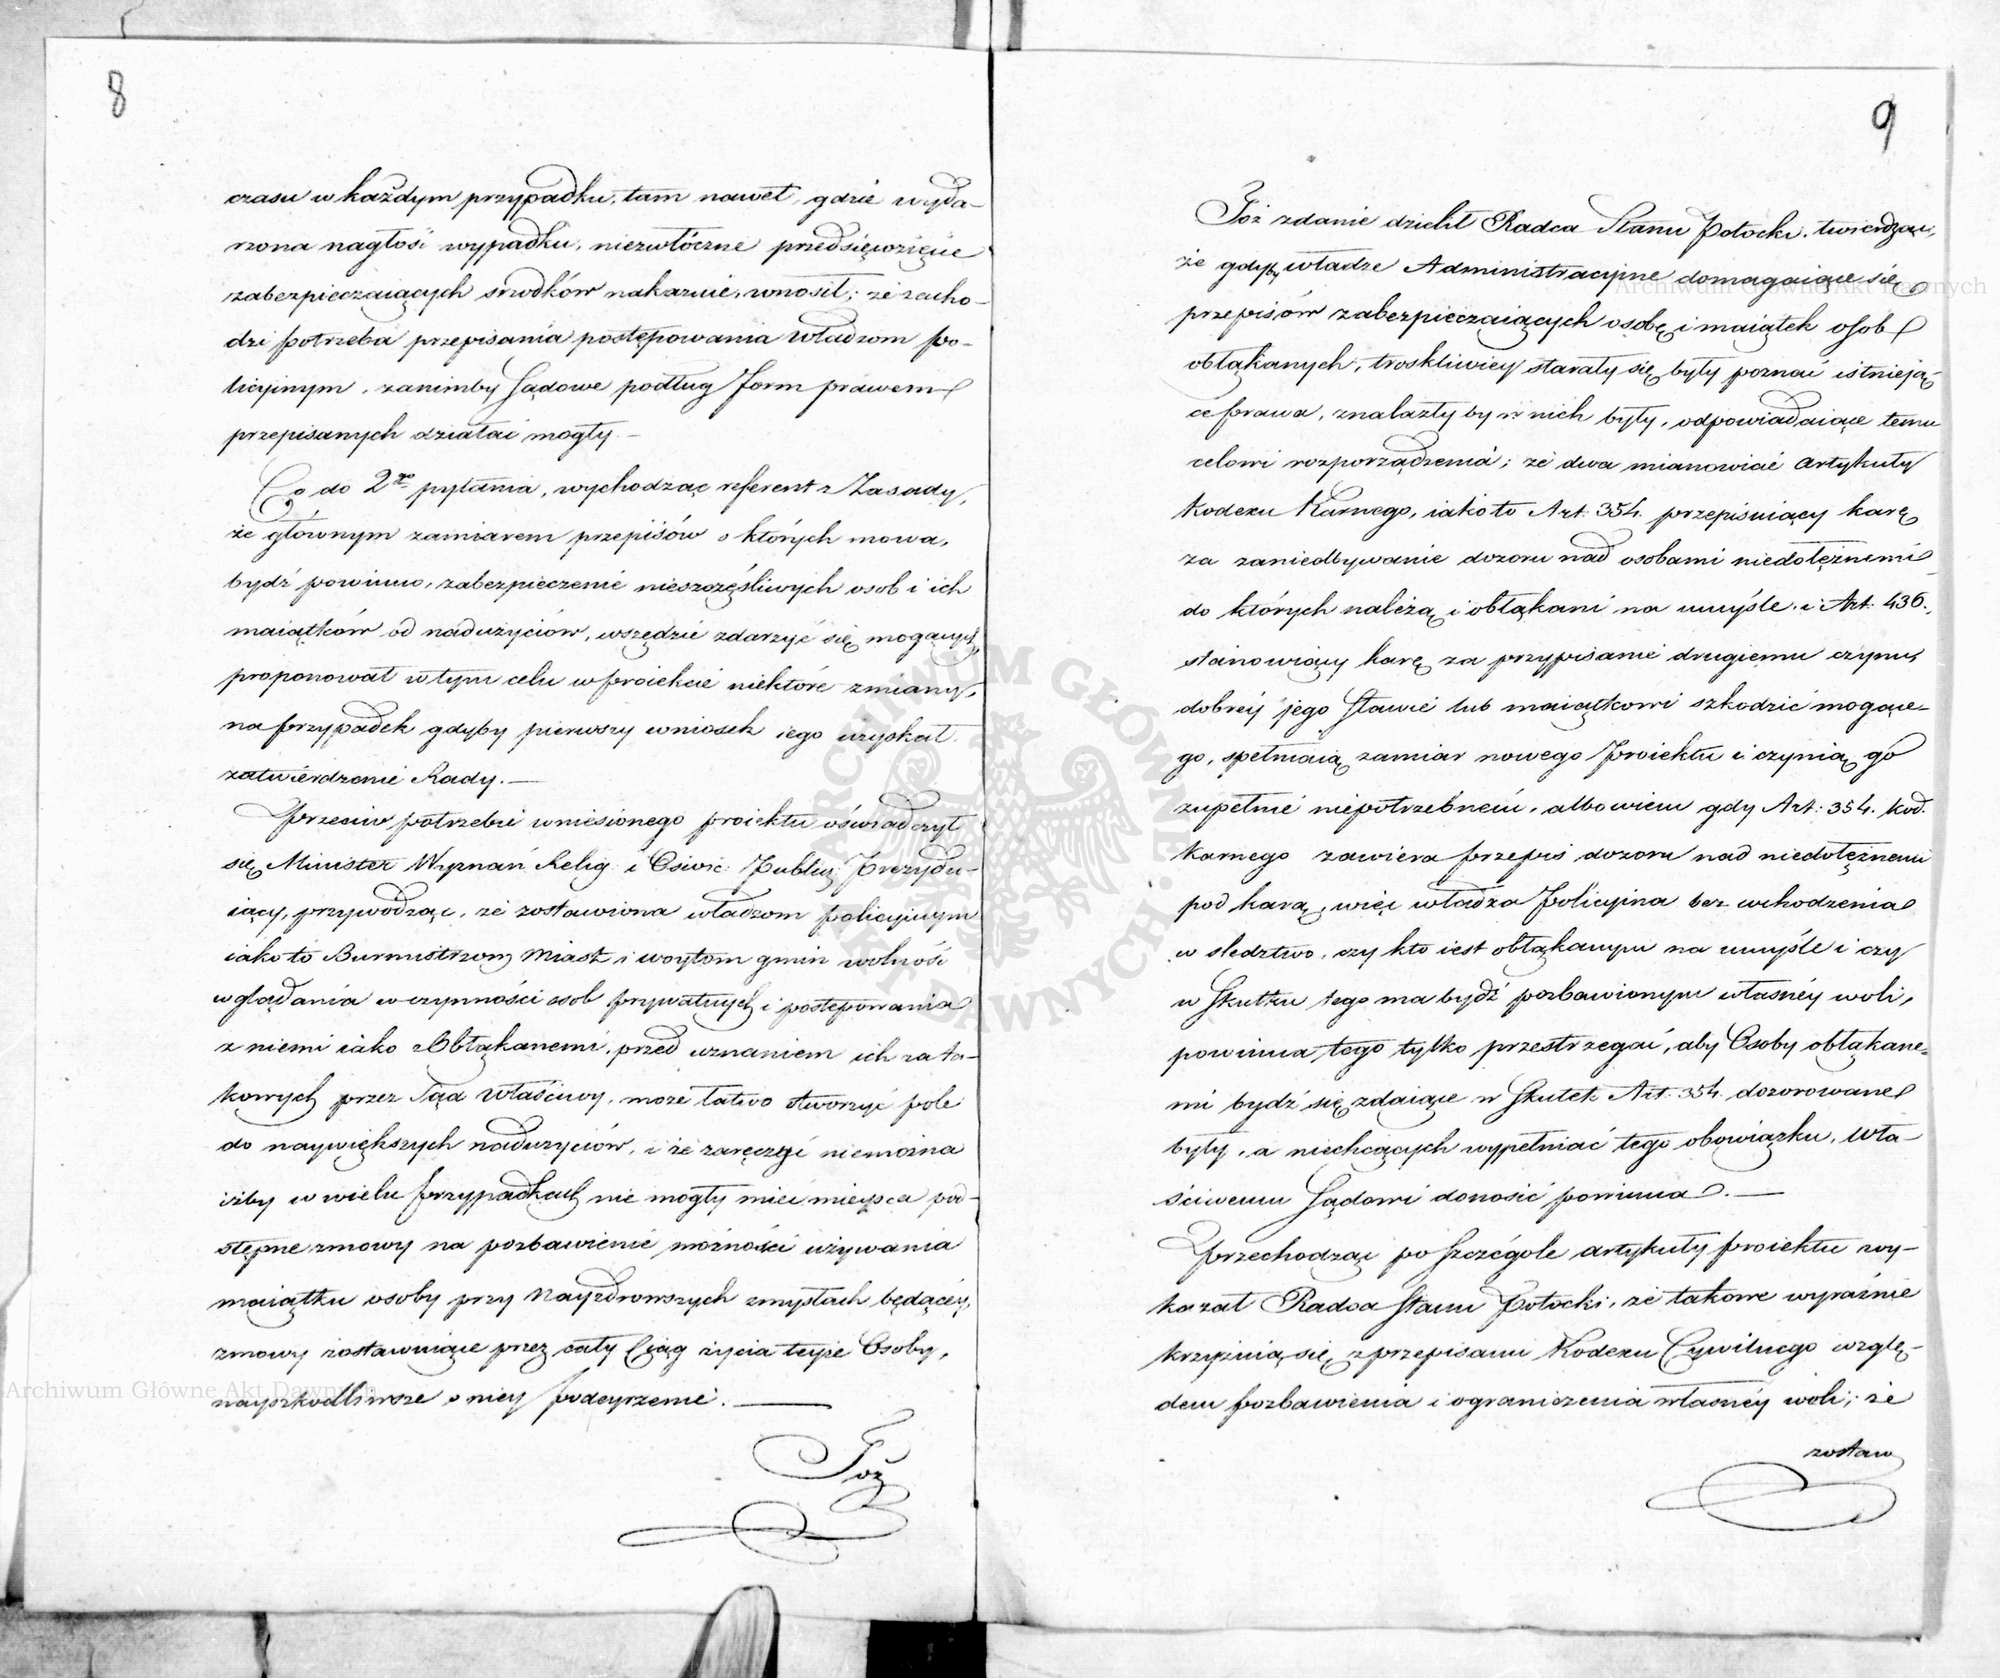 8
czasu w każdym przypadku, tam nawet, gdzie wyda-
rzona nagłość wypadku, niezwłóczne przedsięwzięcie
zabezpieczaiących srzodków nakazuie, wnosił; że zacho-
dzi potrzeba przepisania postępowania Władzom po-
licyinym, zanimby Sądowe podług form prawem
przepisanych działać mogły. —
Co do 2go pytania, wychodząc referent z Zasady,
że głównym zamiarem przepisów o których mowa,
bydź powinno, zabezpieczenie nieszczęśliwych osob i ich
maiątków od nadużyciów, wszędzie zdarzyć się mogących,
proponował w tym celu w proiekcie niektóre zmiany,
na przypadek gdyby pierwszy wniosek iego uzyskał
zatwierdzenie Rady. —
Przeciw potrzebie wniesionego proiektu oświadczył
się Minister Wyznań Relig: i Oświe: Publicz: Prezydu-
iący, przywodząc, że zostawiona władzom policyinym
iako to Burmistrzom Miast i woytom gmin wolność
wglądania w czynności osob prywatnych i postępowania
z niemi iako z Obłąkanemi, przed uznaniem ich za ta-
kowych przez Sąd Właściwy, może łatwo stworzyć pole
do naywiększych nadużyciów, i że zaręczyć niemożna
iżby w wielu przypadkach nie mogły mieć mieysca pod-
stępne zmowy na pozbawienie możności używania
maiątku osoby przy Nayzdrowszych zmysłach będącéy,
zmowy zostawuiące przez cały Ciąg życia teyże Osoby,
nayszkodliwsze o niey podeyrzenie. —
Toż
9
Toż zdanie dzielił Radca Stanu Potocki, twierdząc,
że gdyby władze Administracyine domagaiące się
przepisów zabezpieczaiących osobę i maiątek osob
obłąkanych, troskliwiey starały się były poznać istnieją-
ce prawa, znalazły by w nich były, odpowiadaiące temu
celowi rozporządzenia; że dwa mianowicie Artykuły
Kodexu Karnego, iako to Art: 354. przepisuiący karę
za zaniedbywanie dozoru nad osobami niedołężnemi
do których należą i obłąkani na umyśle, i Art: 436.,
stanowiący karę za przypisanie drugiemu czynu,
dobréy jego Sławie lub maiątkowi szkodzić mogące-
go, spełniaią zamiar nowego Proiektu i czynią go
zupełnie niepotrzebnem, albowiem gdy Art: 354. Kod.
Karnego zawiera przepis dozoru nad niedołężnemi
pod karą, więc władza Policyina bez wchodzenia
w sledztwo, czy kto iest obłąkanym na umyśle i czy
w Skutku tego ma bydź pozbawionym własnéy woli,
powinna tego tylko przestrzegać, aby Osoby obłąkane-
mi bydź się zdaiące w Skutek Art: 354. dozorowane
były, a niechcących wypełniać tego obowiązku, Wła-
ściwemu Sądowi donosić powinna. —
Przechodząc po szczególe artykuły proiektu wy-
kazał Radca Stanu Potocki, że takowe wyraźnie
krzyżuią się z przepisami Kodexu Cywilnego wzglę-
dem pozbawienia i ograniczenia własnéy woli; że
zostaw
Archiwum Główne Akt Dawnych
Archiwum Główne Akt Dawnych
ARCHIWUM GŁÓWNE AKT DAWNYCH